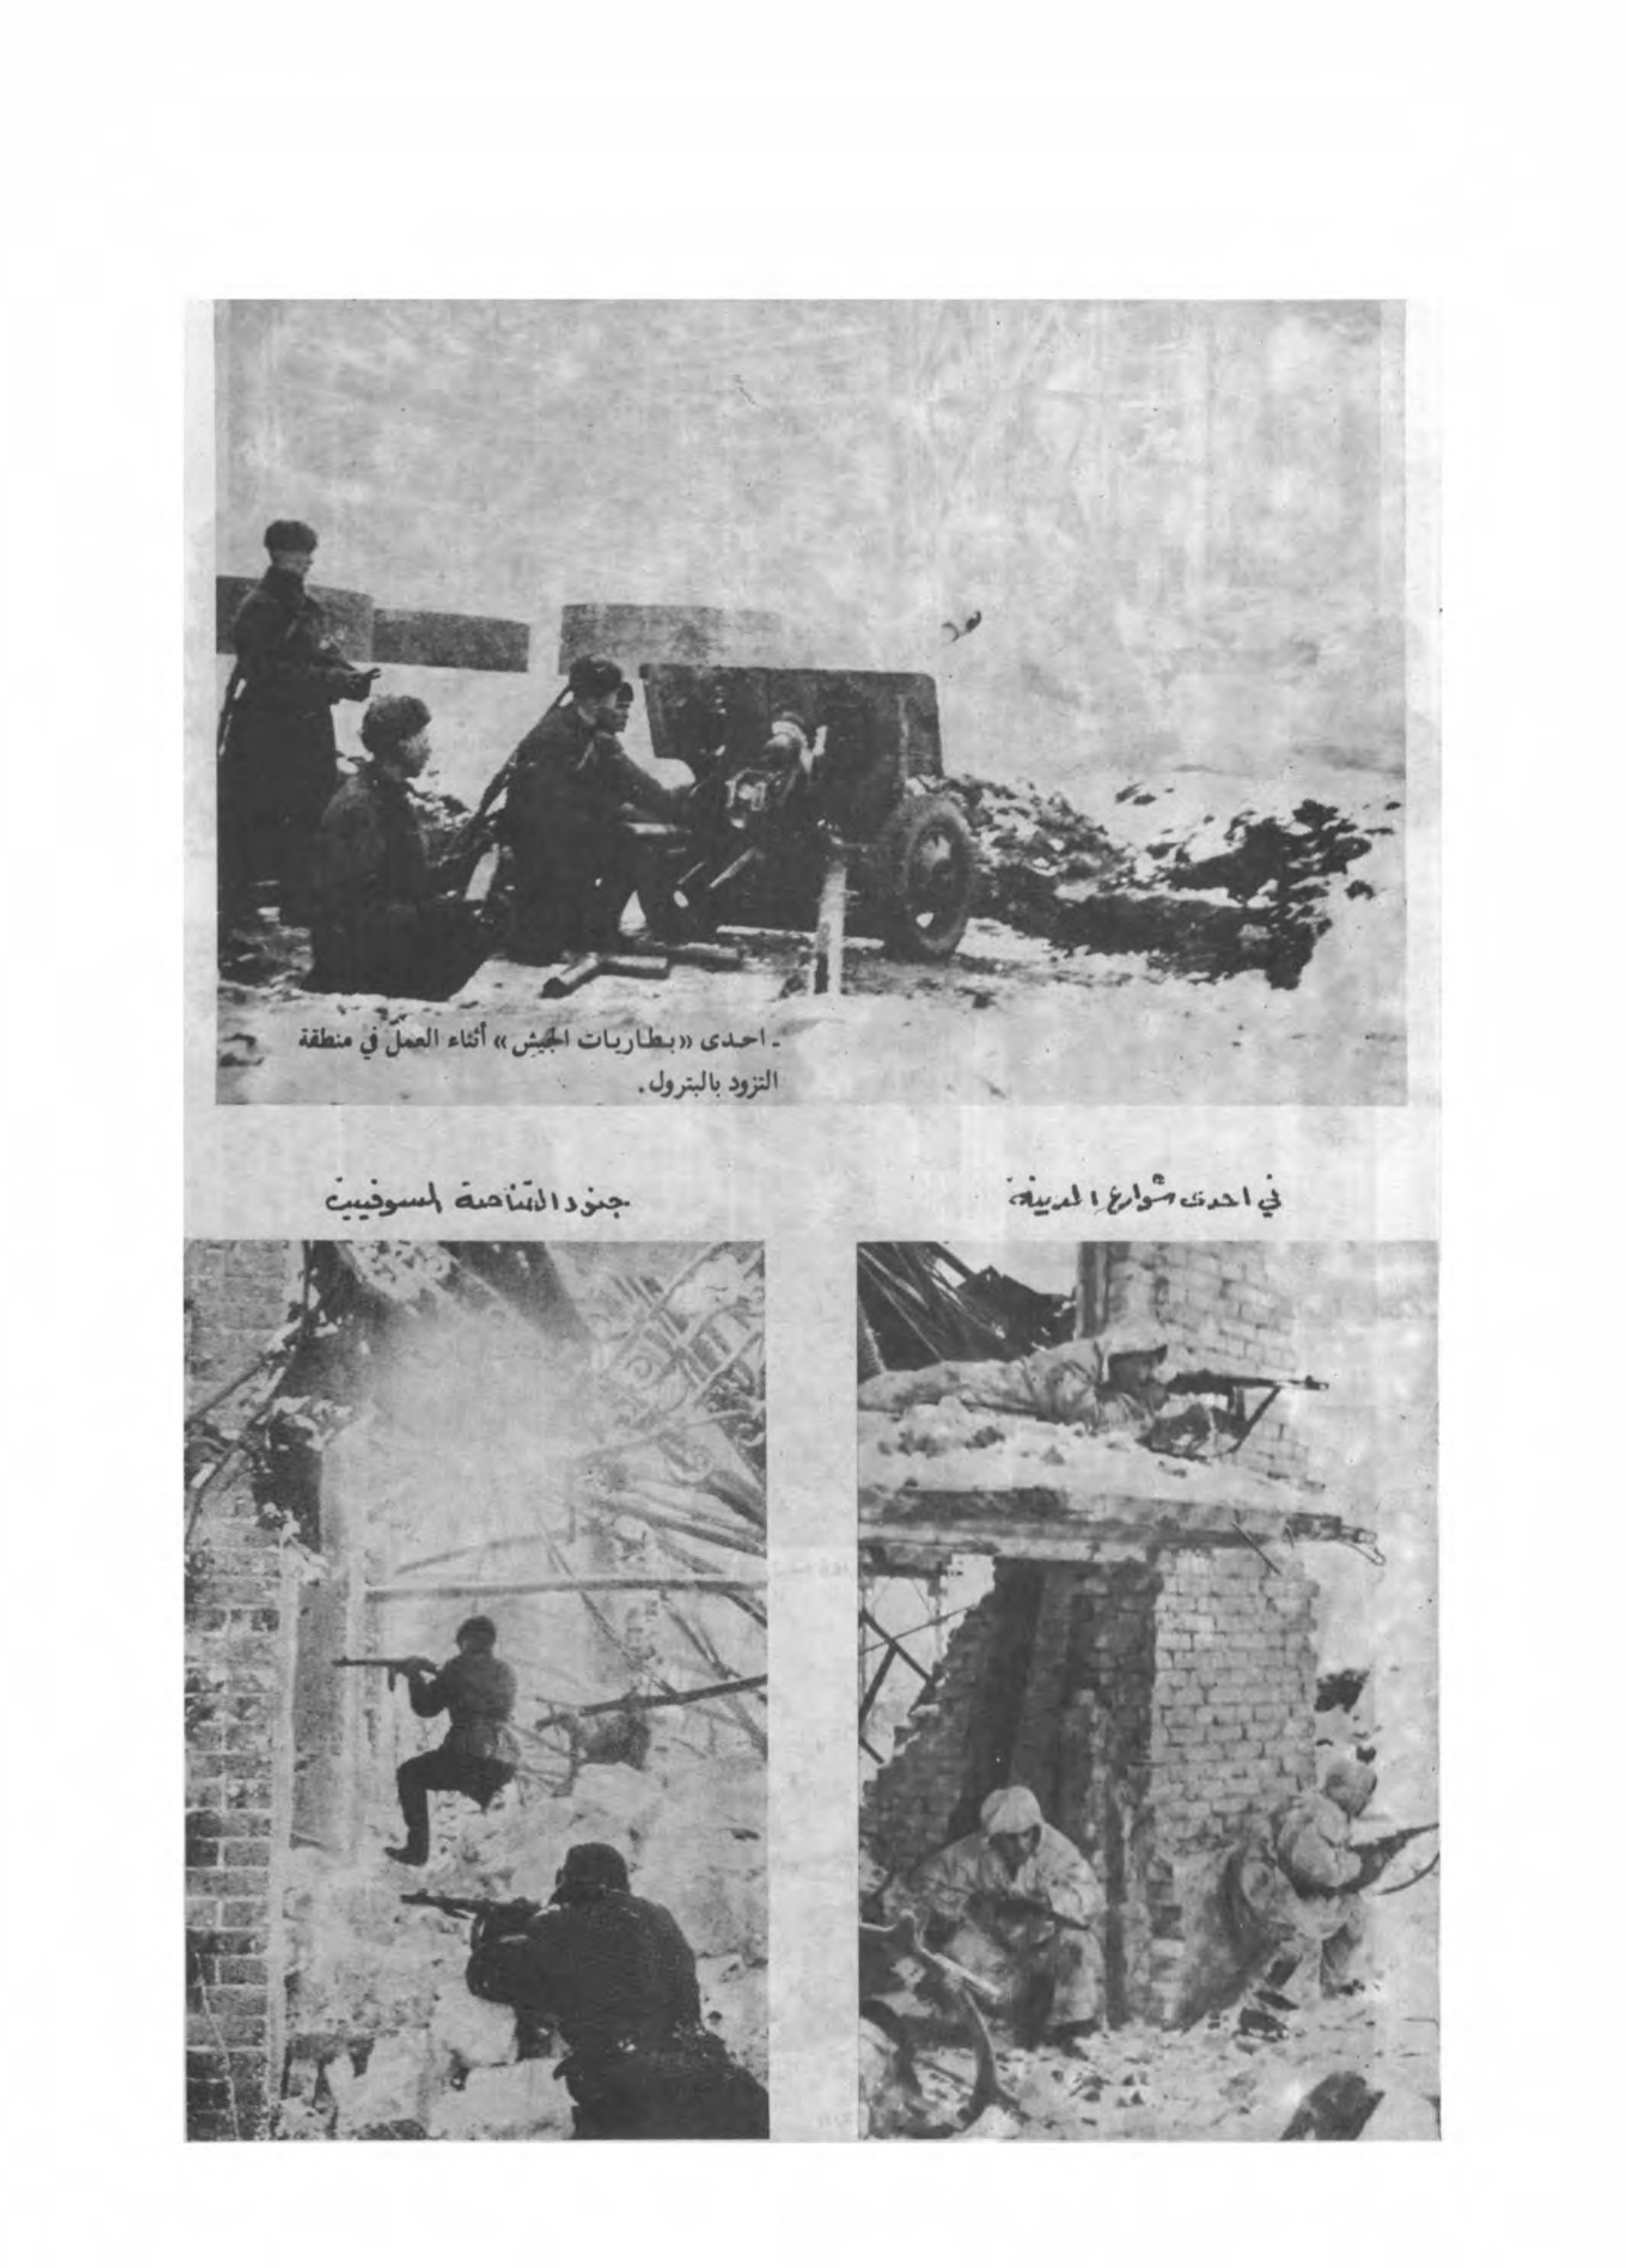 ـ احدى «بطاريات الجيش» أثناء العمل في منطقة
التزود بالبترول.
في احدى شوارع المدينة
جنود القناصة السوفييت